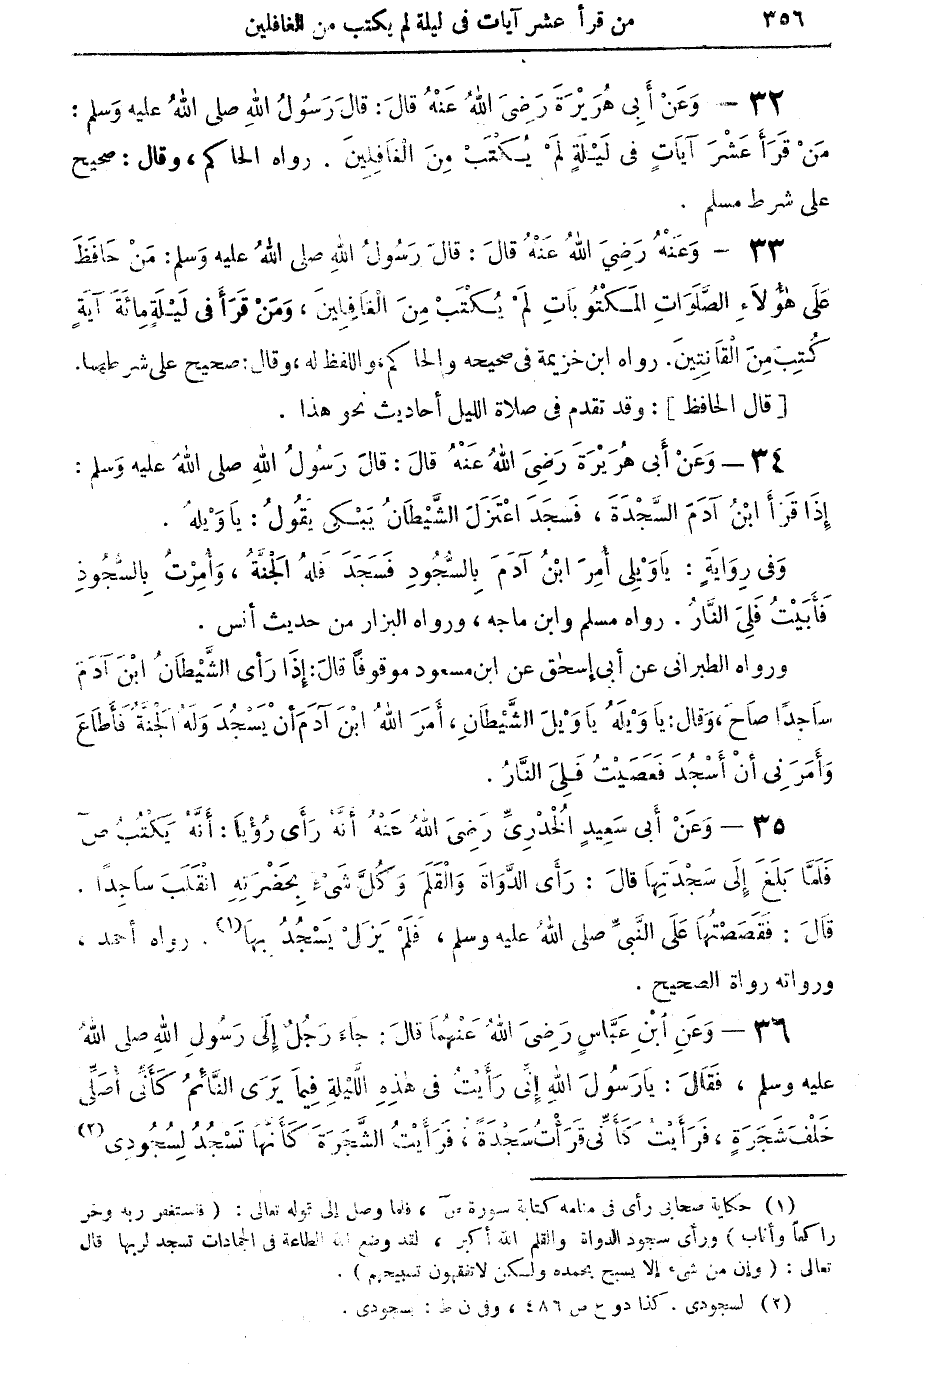 ٣٥٦ من قرأ عشر آيات فى ليلة لم يكتب من الغافلين
٣٢ — وَعَنْ أَبِى هُرَيْرَةَ رَضِىَ اللهُ عَنْهُ قَالَ: قالَ رَسُولُ اللهِ صلى اللهُ عليه وَسلم :
مَنْ قَرَأَ عَشْرَ آيَاتٍ فى لَيْلَةٍ لَمْ يُكْتَبْ مِنَ الْغَافِلِينَ . رواه الحاكم ، وقال : صحيح
على شرط مسلم .
٣٣ — وَعَنْهُ رَضِيَ اللهُ عَنْهُ قالَ : قالَ رَسُولُ اللهِ صلى اللهُ عليه وَسلم: مَنْ حَافَظَ
عَلَى هٰؤُلَاءِ الصَّلَوَاتِ المَكْتُوبَاتِ لَمْ يُكْتَبْ مِنَ الْغَافِلِينَ ، وَمَنْ قَرَأَ فى لَيْلَةٍ مِائَةَ آيَةٍ
كُتِبَ مِنَ الْقَانِتِينَ. رواه ابن خزيمة فى صحيحه والحاكم، واللفظ له ،وقال: صحيح على شرطهما.
[ قال الحافظ ] : وقد تقدم فى صلاة الليل أحاديث نحو هذا .
٣٤ — وَعَنْ أَبِى هُرَيْرَةَ رَضِىَ اللهُ عَنْهُ قالَ : قالَ رَسُولُ اللهِ صلى اللهُ عليه وَسلم :
إِذَا قَرَأَ ابْنُ آدَمَ السَّجْدَةَ ، فَسَجَدَ اعْتَزَلَ الشَّيْطَانُ يَبْكِى يَقُولُ : يا وَيْلهُ .
وَفى رِوَايَةٍ : يَاوَيْلِى أُمِرَ ابْنُ آدَمَ بِالسُّجُودِ فَسَجَدَ فَلهُ الْجَنَّةُ ، وَأُمِرْتُ بِالسُّجُودِ
فَأَبَيْتُ فَلِىَ النَّارُ . رواه مسلم وابن ماجه ، ورواه البزار من حديث أنس .
ورواه الطبرانى عن أبى إسحٰق عن ابن مسعود موقوفاً قالَ: إِذَا رَأى الشَّيْطَانُ ابْنَ آدَمَ
سَاجِدًا صَاحَ ،وَقالَ: يَاوَيْلَهُ يَاوَيْلَ الشَّيْطَانِ، أَمَرَ اللهُ ابْنَ آدَمَ أنْ يَسْجُدَ وَلَهُ الْجَنَّةُ فَأَطَاعَ
وَأَمَرَنِى أنْ أَسْجُدَ فَعَصَيْتُ فَلِىَ النَّارُ .
٣٥ — وَعَنْ أَبى سَعِيدٍ الْخُدْرِىِّ رَضِىَ اللهُ عَنْهُ أَنَّهُ رَأَى رُؤْيَا : أَنَّهُ يَكْتُبُ صٓ
فَلَمَّا بَلَغَ إِلَى سَجْدَتِهَا قالَ : رَأَى الدَّوَاةَ وَالْقَلَمَ وَكُلَّ شَىْءٍ بِحَضْرَتِهِ انْقَلَبَ سَاجِدًا .
قَالَ : فَقَصَصْتُهَا عَلَى النَّبىِّ صلى اللهُ عليه وسلم ، فَلَمْ يَزَلْ يَسْجُدُ بِهَا(١) . رواه أحمد ،
ورواته رواة الصحيح .
٣٦ — وَعَنِ ابْنِ عَبَّاسٍ رَضِىَ اللهُ عَنْهُمَا قالَ : جَاءَ رَجُلٌ إِلَى رَسُولِ اللهِ صلى اللهُ
عليه وسلم ، فَقَالَ : يَارَسُولَ اللهِ إِنِّى رَأَيْتُ فى هٰذِهِ اللَّيْلَةِ فِيمَا يَرَى النَّائِمُ كَأَنِّى أُصَلِّى
خَلْفَ شَجَرَةٍ ، فَرَأَيْتُ كَأَنِّى قَرَأْتُ سَجْدَةً ، فَرَأَيْتُ الشَّجَرَةَ كَأَنَّهَا تَسْجُدُ لِسُجُودِى(٢)
(١) حكاية صحابى رأى فى منامه كتابة سورة صٓ ، فلما وصل إلى قوله تعالى : ( فاستغفر ربه وخر
راكعاً وأناب ) ورأى سجود الدواة والقلم الله أكبر ، لقد وضع الله الطاعة فى الجمادات تسجد لربها قال
تعالى : ( وإن من شىء إلا يسبح بحمده ولكن لاتفقهون تسبيحهم ) .
(٢) لسجودى . كذا د و ع ص ٤٨٦ ، وفى ن ط : بسجودى .